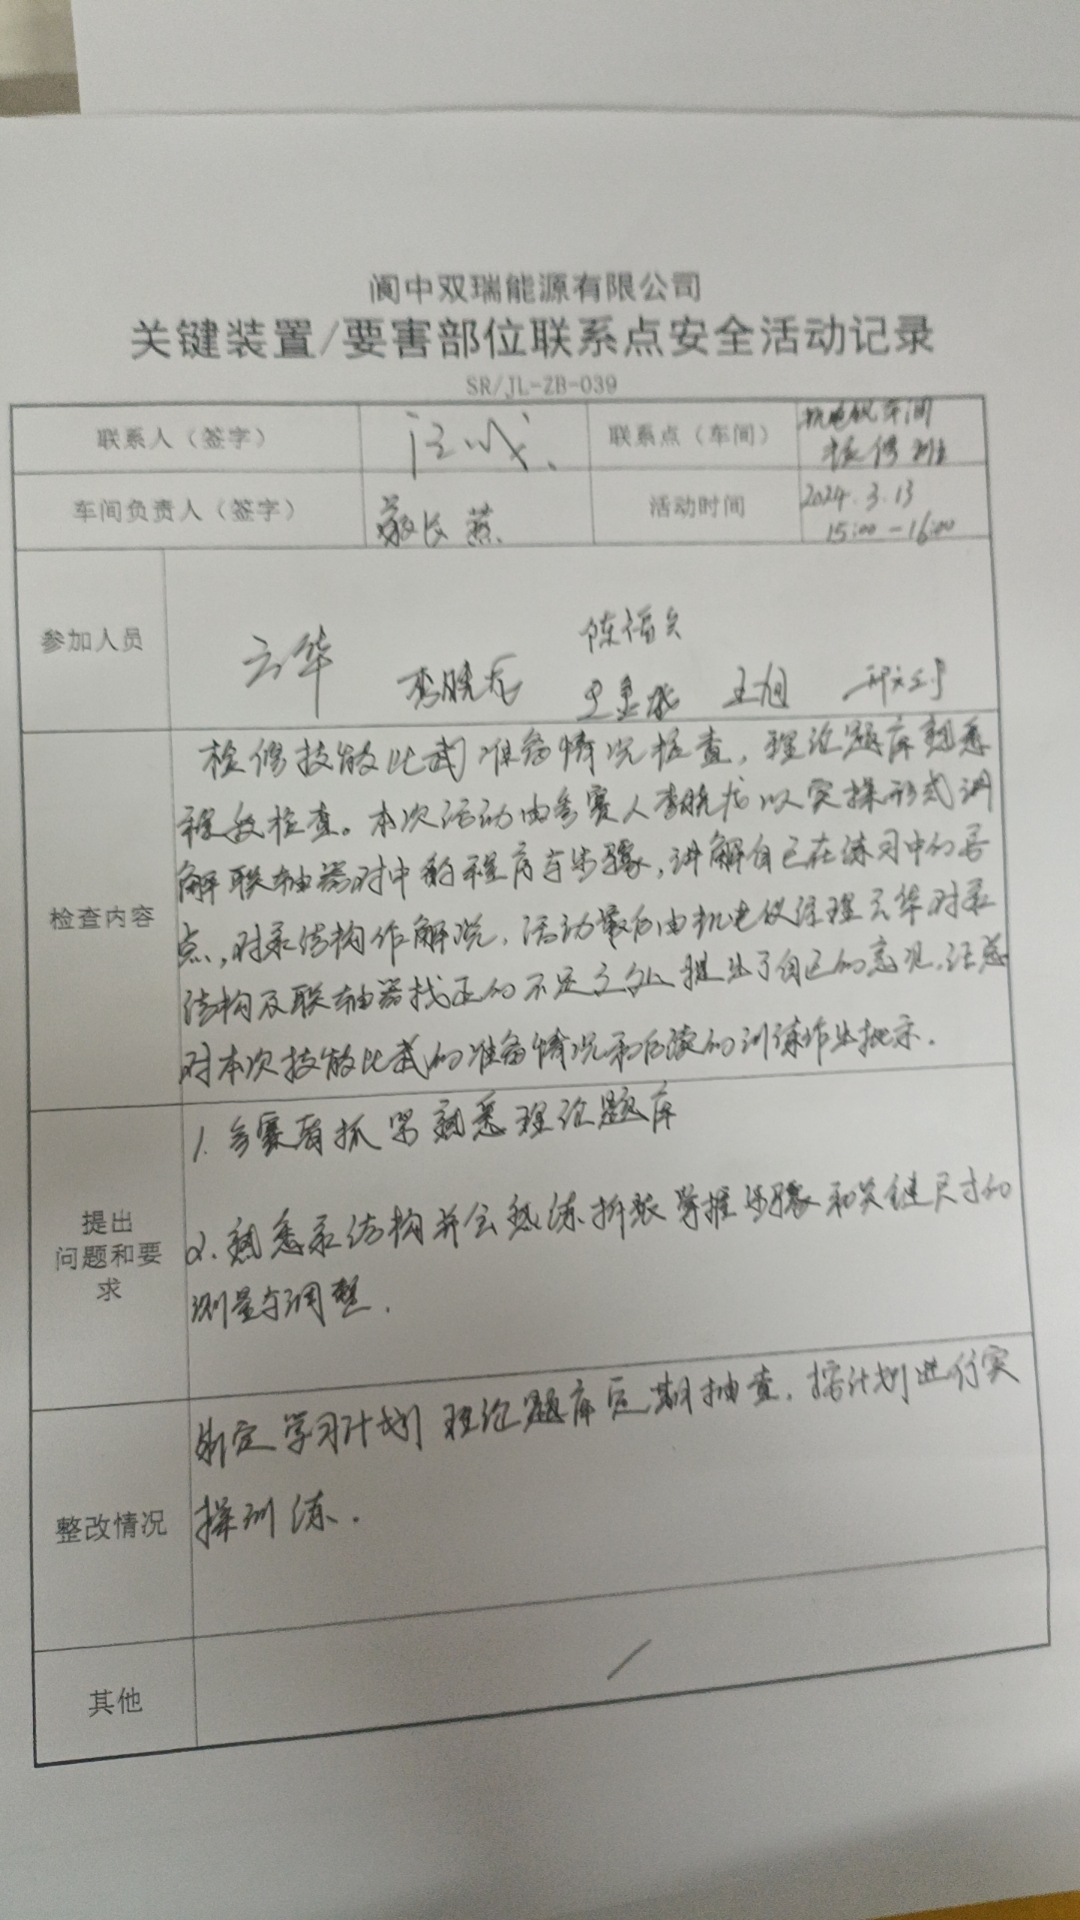 阆中双瑞能源有限公司
关键装置/要害部位联系点安全活动记录
SR/JL-ZB-039
联系人（签字） 联系点（车间） 机电仪车间
检修班
车间负责人（签字） 活动时间 2024.3.13
15:00-16:00
参加人员
云华 李晓龙 王旭
检修技能比武准备情况检查，理论题库熟悉
程度检查。本次活动由参赛人李晓龙以实操形式讲
解联轴器对中的程序与步骤，讲解自己在练习中的
检查内容
点，对泵结构作解说，活动最后由机电仪经理云华对泵
结构及联轴器找正的不足之处提出了自己的意见，汪总
对本次技能比武的准备情况和后续的训练作出批示.
1. 参赛者抓紧熟悉理论题库
提出
问题和要
求
2. 熟悉泵结构并会熟练拆装掌握步骤和关键尺寸的
测量与调整.
制定学习计划 理论题库定期抽查，按计划进行实
整改情况
操训练.
其他 /